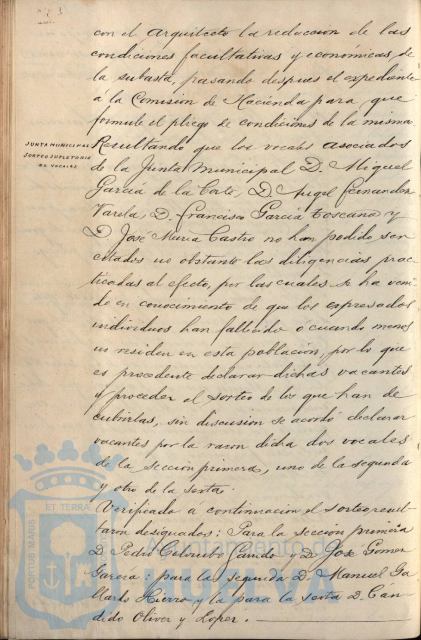 con el Arquitecto la redaccion de las
condiciones facultativas y económicas de
la subasta, pasando despues el expediente
á la Comision de Hacienda para que
formule el pliego de condiciones de la misma.
JUNTA MUNICIPAL
SORTEO SUPLETORIO
DE VOCALES
Resultando que los vocales asociados
de la Junta Municipal D. Miguel
García de la Corte, D. Angel Fernandez
Varela, D. Francisco García Toscano y
D. José Maria Castro no han podido ser
citados no obstante las diligencias prac-
ticadas al efecto, por las cuales se ha veni-
do en conocimiento de que los expresados
individuos han fallecido ó cuando menos
no residen en esta poblacion, por lo que
es procedente declarar dichas vacantes
y proceder al sorteo de los que han de
cubrirlas, sin discusion se acordó declarar
vacantes por la razon dicha dos vocales
de la seccion primera, uno de la segunda
y otro de la sexta.
Verificado á continuacion el sorteo resul-
taron designados: Para la seccion primera
D. Pedro Garrido y D. José Gomez
García: para la segunda D. Manuel Ga-
llardo Hierro y la para la sexta D. Can-
dido Oliver y Lopez.
PORTUS MARIS
ET TERRA